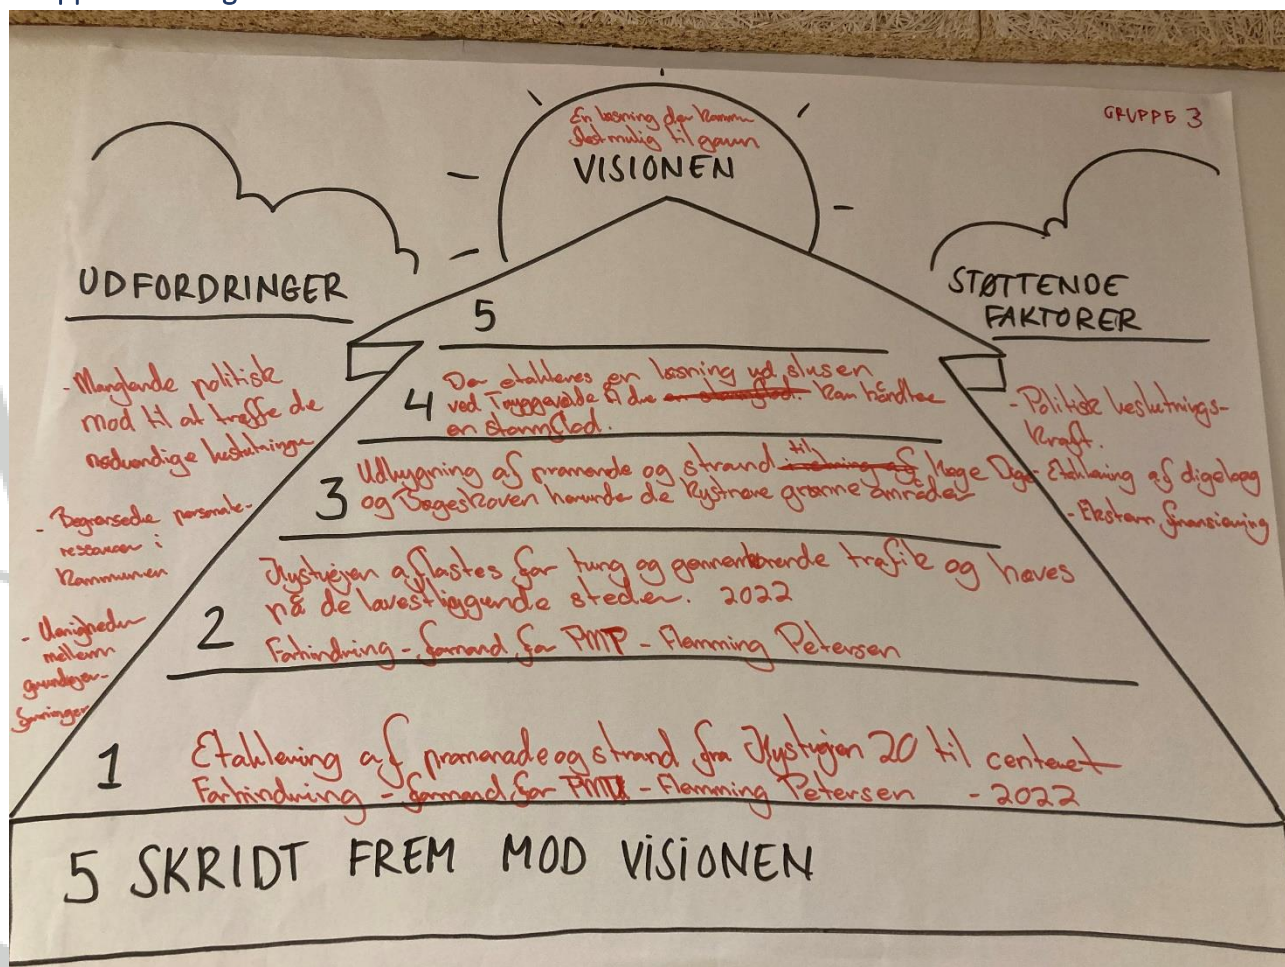 GRUPPE 3
En løsning der kommer
flest mulig til gavn
VISIONEN
UDFORDRINGER
- Manglende politisk
mod til at træffe de
nødvendige beslutninger
- Begrænsede personale-
ressourcer i
kommunen
- Uenigheder
mellem
grundejer-
foreninger
STØTTENDE
FAKTORER
- Politisk beslutnings-
kraft.
- Etablering af digelaug
- Ekstern finansiering
5
4 Der etableres en løsning ved slusen
ved Tryggevælde Å der en stormflod. kan håndtere
en stormflod.
3 Udbygning af promenade og strand til Køge Dige
og Bøgeskoven herunder de kystnære grønne områder
2 Kystvejen aflastes for tung og gennemkørende trafik og hæves
på de lavestliggende steder. 2022
Forhindring - formand for - Flemming Petersen
1 Etablering af promenade og strand fra Kystvejen 20 til centeret
Forhindring - formand for - Flemming Petersen - 2022
5 SKRIDT FREM MOD VISIONEN